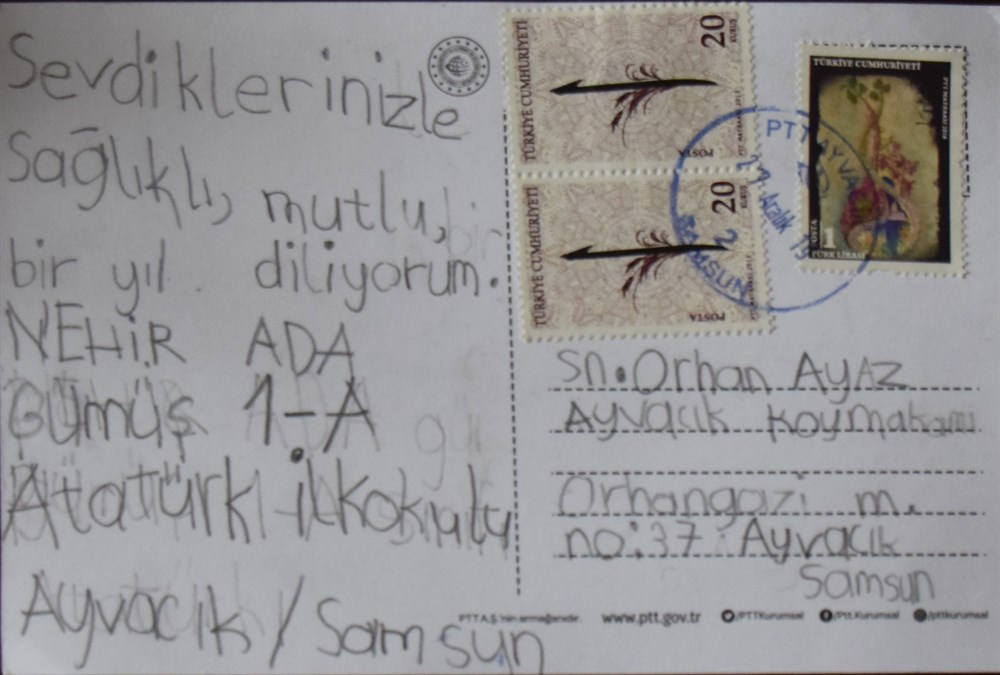 Sevdiklerinizle
Sağlıklı, mutlu,
bir yıl diliyorum.
NEHİR ADA
Gümüş 1-A
Atatürk ilkokulu
Ayvacık / Samsun
TÜRKİYE CUMHURİYETİ
20
KURUŞ
POSTA
TÜRKİYE CUMHURİYETİ
20
POSTA
TÜRKİYE CUMHURİYETİ
POSTA
1
TÜRK LİRASI
PTT AYVA
Aralık 19
SAMSUN
Sn. Orhan Ayaz
Ayvacık Kaymakamı
Orhangazi m.
no:37 Ayvacık
Samsun
PTT A.Ş.'nin armağanıdır.
www.ptt.gov.tr
/PTTKurumsal
/Ptt.Kurumsal
/pttkurumsal